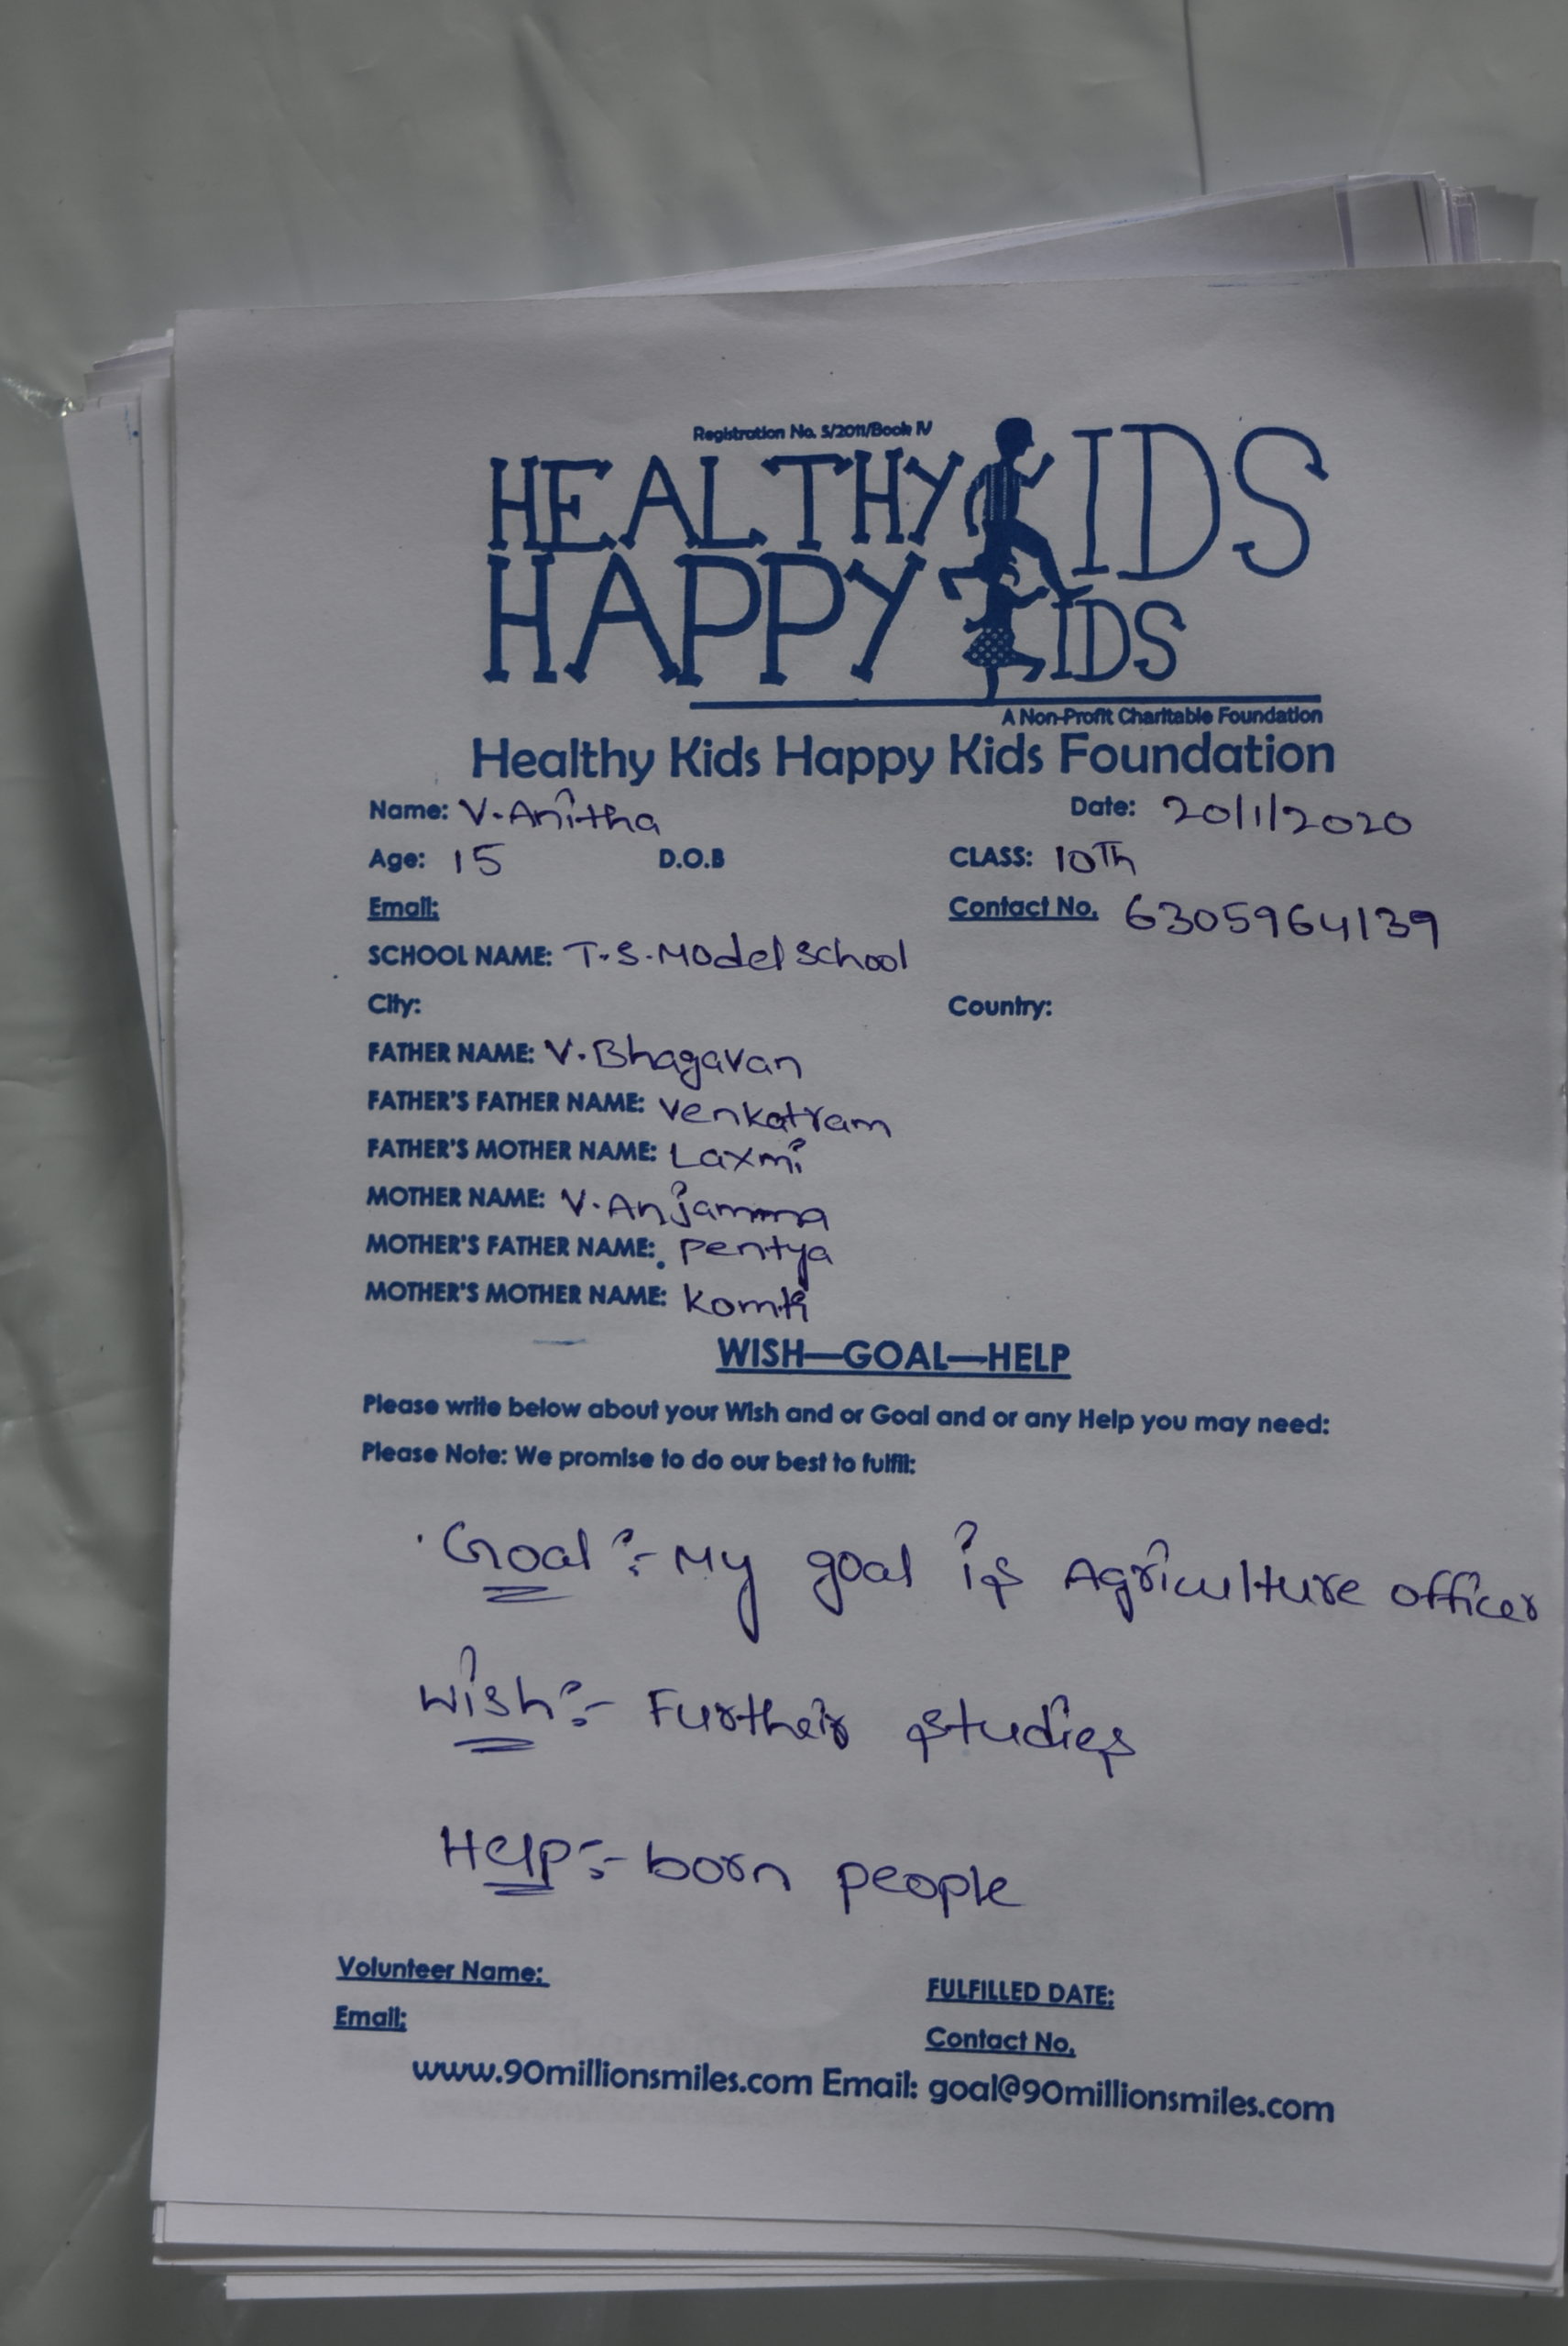 Registration No. 5/2011/Book IV
HEALTHY KIDS
HAPPY KIDS
A Non-Profit Charitable Foundation
Healthy Kids Happy Kids Foundation
Name: V. Anitha Date: 20/1/2020
Age: 15 D.O.B CLASS: 10Th
Email: Contact No. 6305964139
SCHOOL NAME: T.S. Model School
City: Country:
FATHER NAME: V. Bhagavan
FATHER'S FATHER NAME: Venkatram
FATHER'S MOTHER NAME: Laxmi
MOTHER NAME: V. Anjamma
MOTHER'S FATHER NAME: Pentya
MOTHER'S MOTHER NAME: Komti
WISH—GOAL—HELP
Please write below about your Wish and or Goal and or any Help you may need:
Please Note: We promise to do our best to fulfil:
Goal :- My goal is Agriculture officer
Wish :- Further studies
Help :- born people
Volunteer Name: FULFILLED DATE:
Email: Contact No.
www.90millionsmiles.com Email: goal@90millionsmiles.com